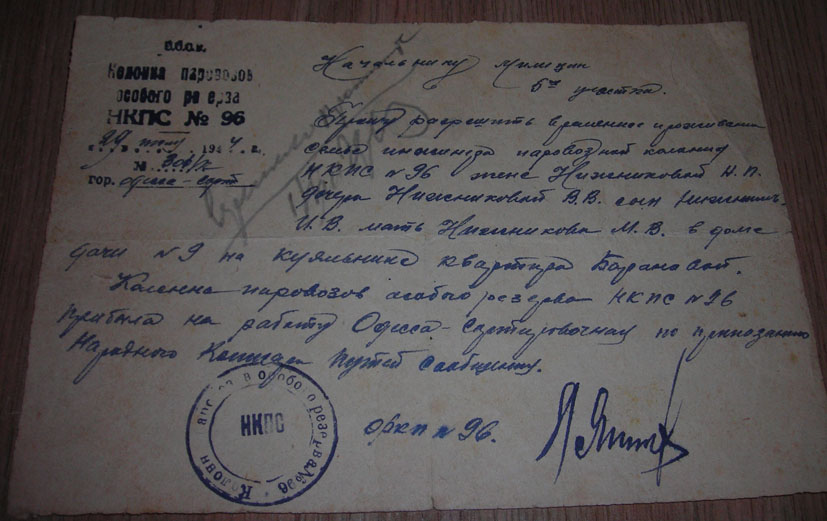 Колонна паровозов
особого ре ерва
НКПС № 96
29 1944 г.
№
гор. Одесса-сорт
Начальнику Милиции
5го участка.
Прошу разрешить временное проживание
семье инженера паровозной колонны
НКПС №96 жене Нижниковой Н. П.
дочери Нижниковой В. В. сын
И. В. мать Нижникова М. В. в доме
дачи №9 на куяльнике квартира Барановой.
Колонна паровозов особого резерва НКПС №96
прибыла на работу Одесса-Сортировочная по приказанию
Народного Путей Сообщения.
НКПС
особого резерва №96
Колонн
ОРКП №96.